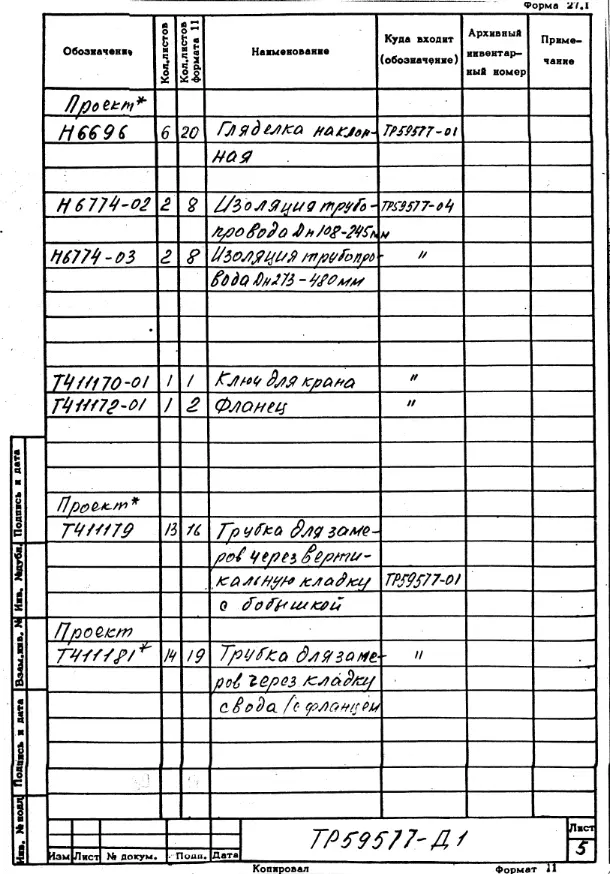 Форма 27.1
Обозначение Кол.листов Кол.листов формата 11 Наименование Куда входит (обозначение) Архивный инвентарный номер Примечание
Проект*
Н6696 6 20 Гляделка наклон- ТР59577-01
ная
Н6774-02 2 8 Изоляция трубо- ТР59577-04
провода Dн108-245мм
Н6774-03 2 8 Изоляция трубопро- "
вода Dн273-480мм
Т411170-01 1 1 Ключ для крана "
Т411172-01 1 2 Фланец "
Проект*
Т411179 13 16 Трубка для заме-
ров через верти-
кальную кладку ТР59577-01
с бобышкой
Проект
Т411181* 14 19 Трубка для заме- "
ров через кладку
свода /с фланцем
Инв. № подл. Подпись и дата Взам.инв. № Инв. № дубл. Подпись и дата
ТР59577-Д1
Лист
5
Изм Лист № докум. Подп. Дата
Копировал Формат 11